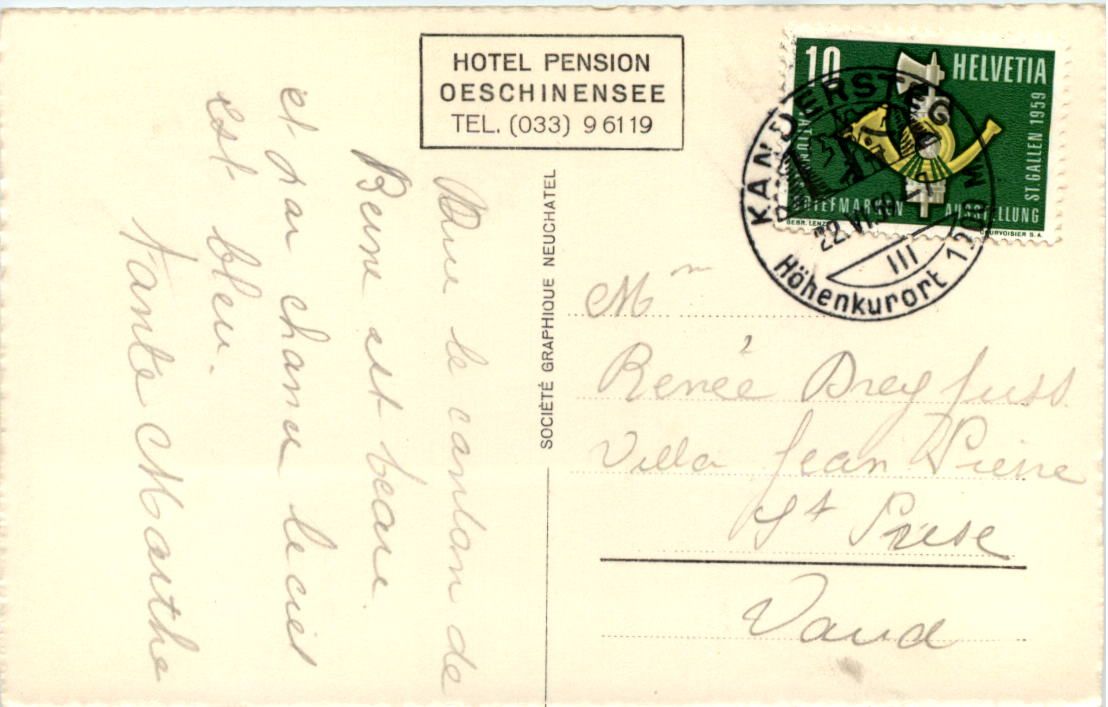 HOTEL PENSION
OESCHINENSEE
TEL. (033) 9 61 19
Que le canton de
Berne est beau.
et par chance le ciel
est bleu.
Tante Marthe
SOCIÉTÉ GRAPHIQUE NEUCHATEL
10
HELVETIA
ST. GALLEN 1959
BRIEFMARKEN AUSSTELLUNG
GEBR. LENZ
COURVOISIER S.A.
KANDERSTEG
22. VI. 59
III
Höhenkurort 1200 M
Mme
Renée Dreyfuss
Villa Jean Pierre
St Prese
Vaud